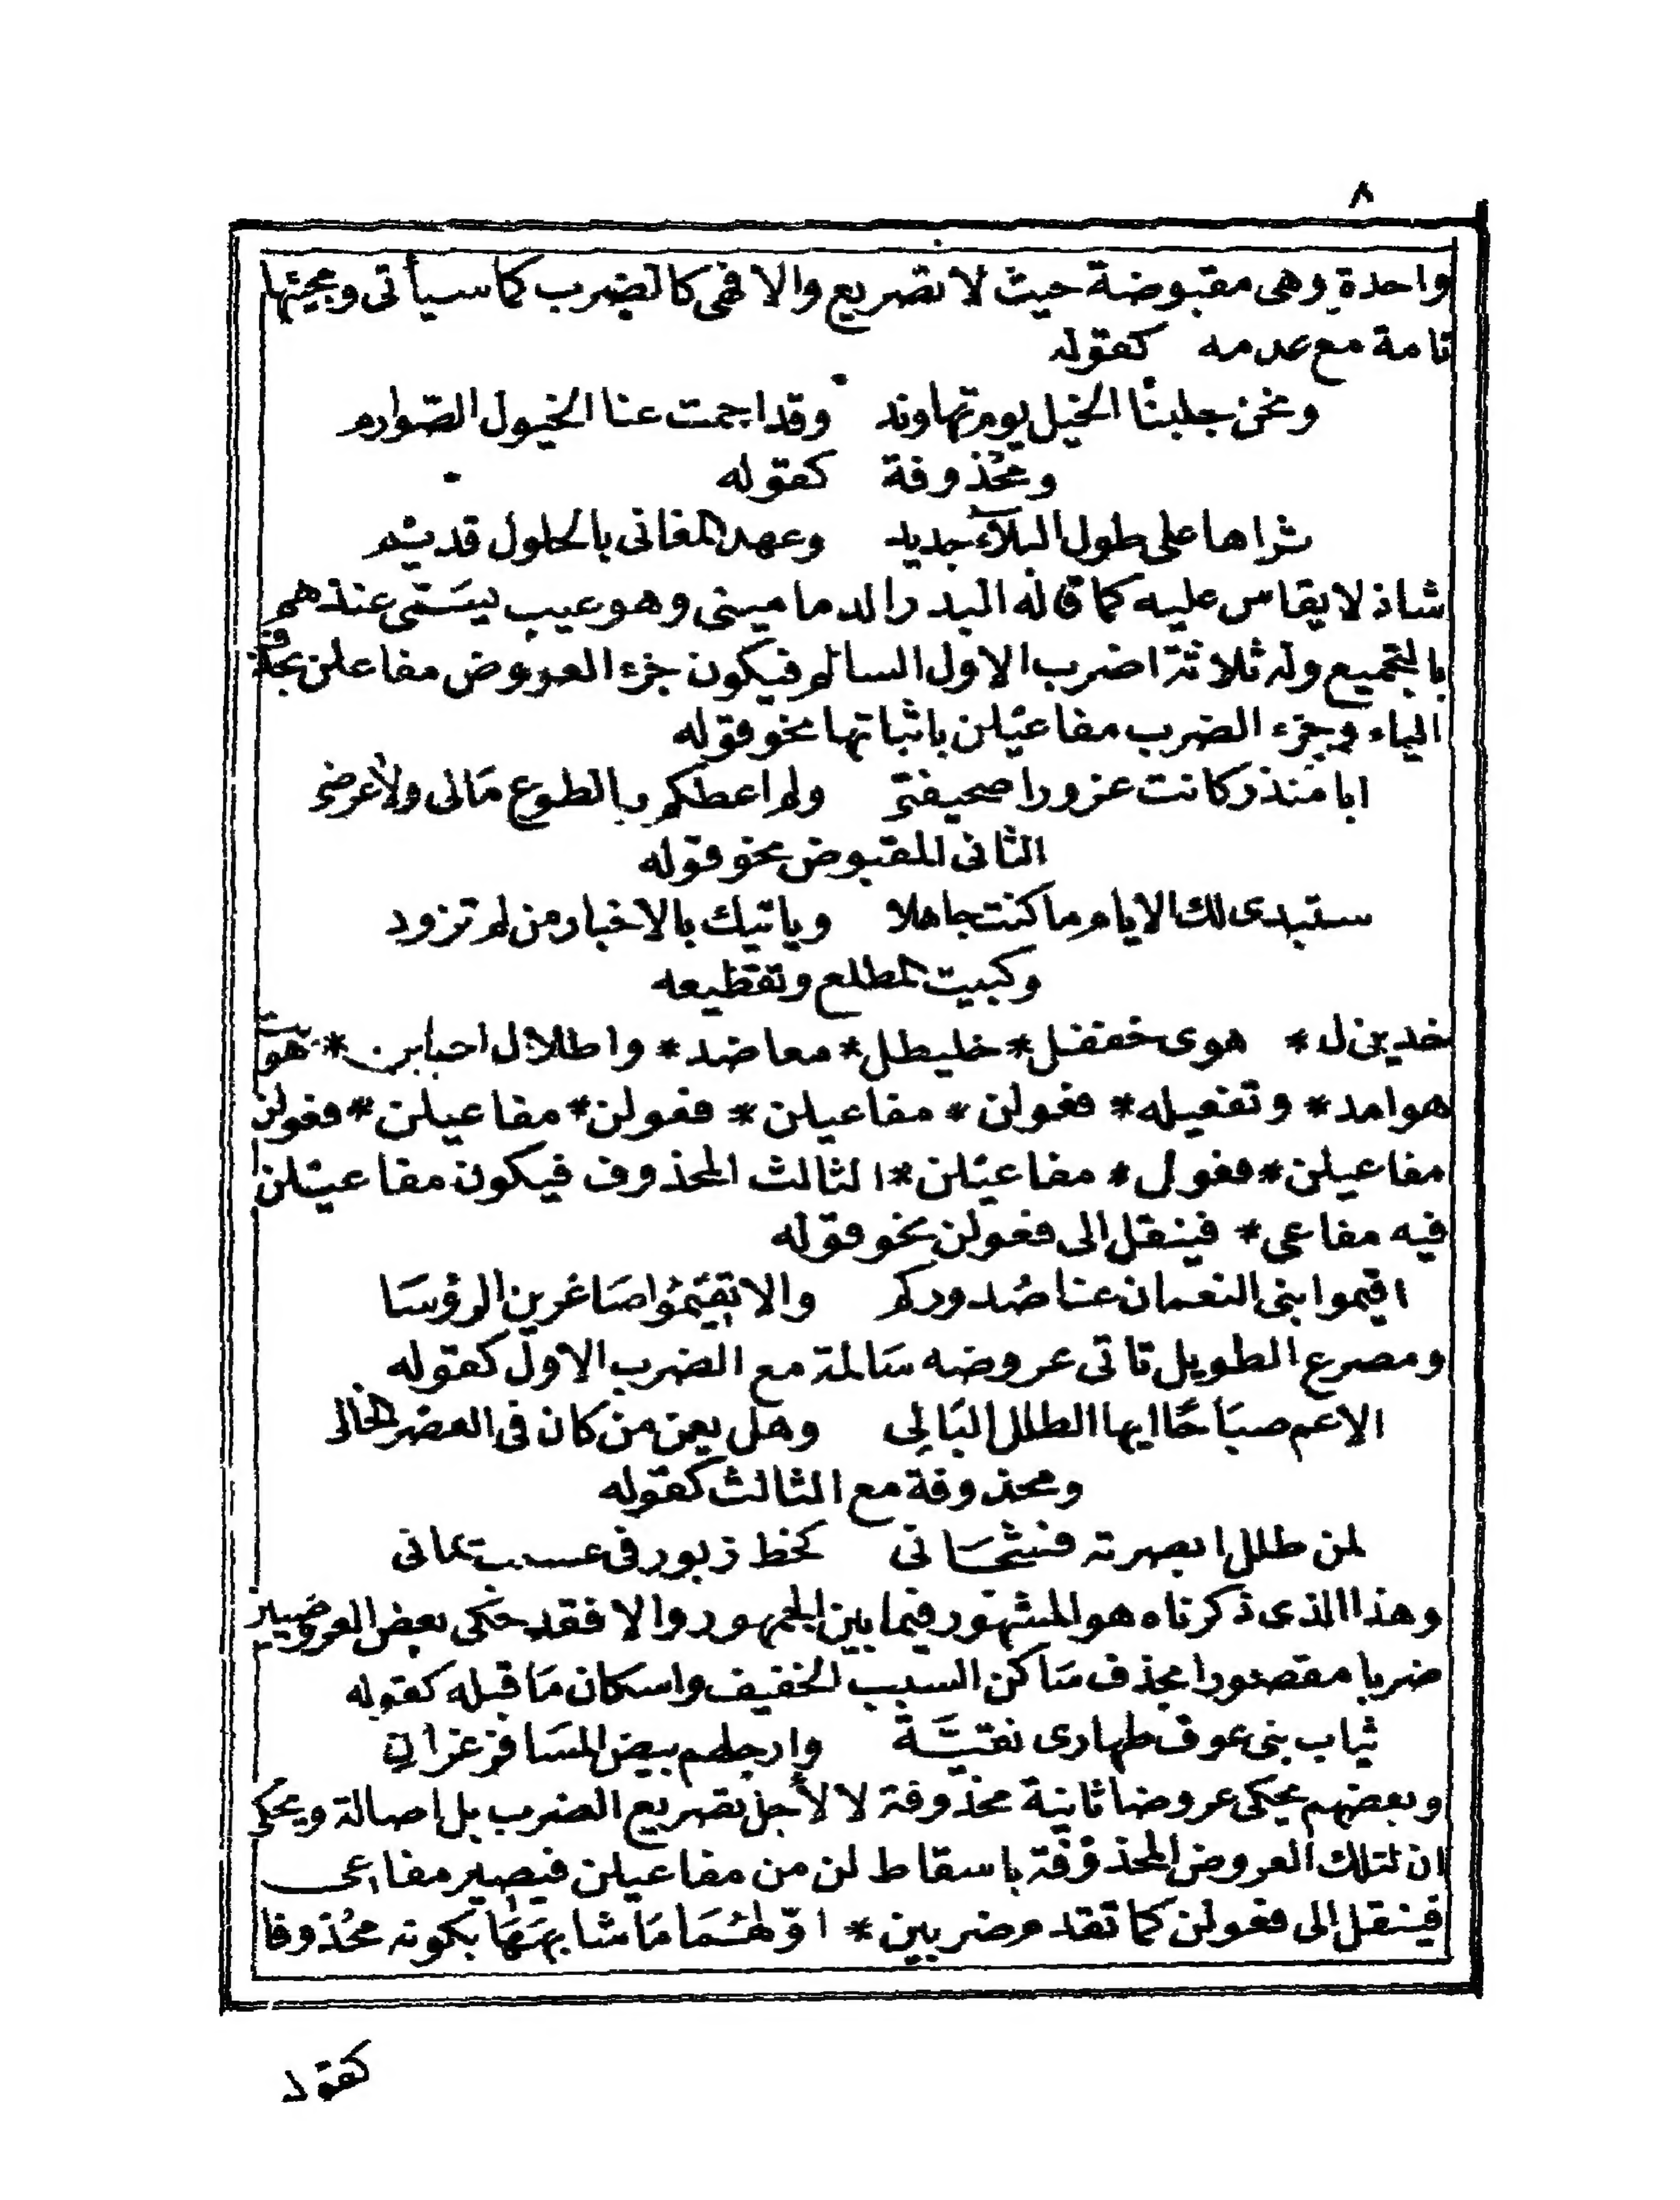 ٨
واحدة وهى مقبوضة حيث لا تصريع والا فهى كالضرب كما سيأتى ومجيئها
تامة مع عدمه كقوله
ونحن جلبنا الخيل يوم نهاوند وقد اجمت عنا الخيول الصوارم
ومحذوفة كقوله
ثراها على طول البلآء جديد وعهد المغانى بالحلول قديم
شاذ لا يقاس عليه كما قاله البدر الدمامينى وهو عيب يسمى عندهم
بالتجميع وله ثلاثة اضرب الاول السالم فيكون جزء العروض مفاعلن بحذف
الياء وجزء الضرب مفاعيلن باثباتها نحو قوله
ابا منذر كانت غرورا صحيفتى ولم اعطكم بالطوع مالى ولا عرضى
الثانى المقبوض نحو قوله
ستبدى لك الايام ما كنت جاهلا وياتيك بالاخبار من لم تزود
وكبيت المطلع وتقطيعه
خديزل * هوى خففل * خليطل * معاضد * واطلال احبابن * هوت
هوامد * وتفعيله * فعولن * مفاعيلن * فعولن * مفاعيلن * فعولن
مفاعيلن * فعول * مفاعيلن * الثالث المحذوف فيكون مفاعيلن
فيه مفاعى * فينقل الى فعولن نحو قوله
اقيموا بنى النعمان عنا صُدوركم والا تقيمُوا صَاغرين الرؤسَا
ومصرع الطويل تاتى عروضه سَالمة مع الضرب الاول كقوله
الاعم صبَاحًا ايها الطلل البَالِى وهل يعمن من كان فى العصر الخالى
ومحذوفة مع الثالث كقوله
لمن طلل ابصرته فشجَانى كخط زبور فى عسيب يمانى
وهذا الذى ذكرناه هو المشهور فيما بين الجمهور والا فقد حكى بعض العروضيين
ضربا مقصورا بحذف سَاكن السبب الخفيف واسكان مَا قبله كقوله
ثياب بنى عوف طهارى نقيَّة وارجلهم بيض المسَافر غران
وبعضهم يحكى عروضا ثانية محذوفة لا لأجل تصريع الضرب بل اصالة ويحكى
ان لتلك العروض المحذوفة باسقاط لن من مفاعيلن فيصير مفاعى
فينقل الى فعولن كما تقدم ضربين * اوّلهُمَا مَا شابهَهَا بكونه محُذوفا
كقوله